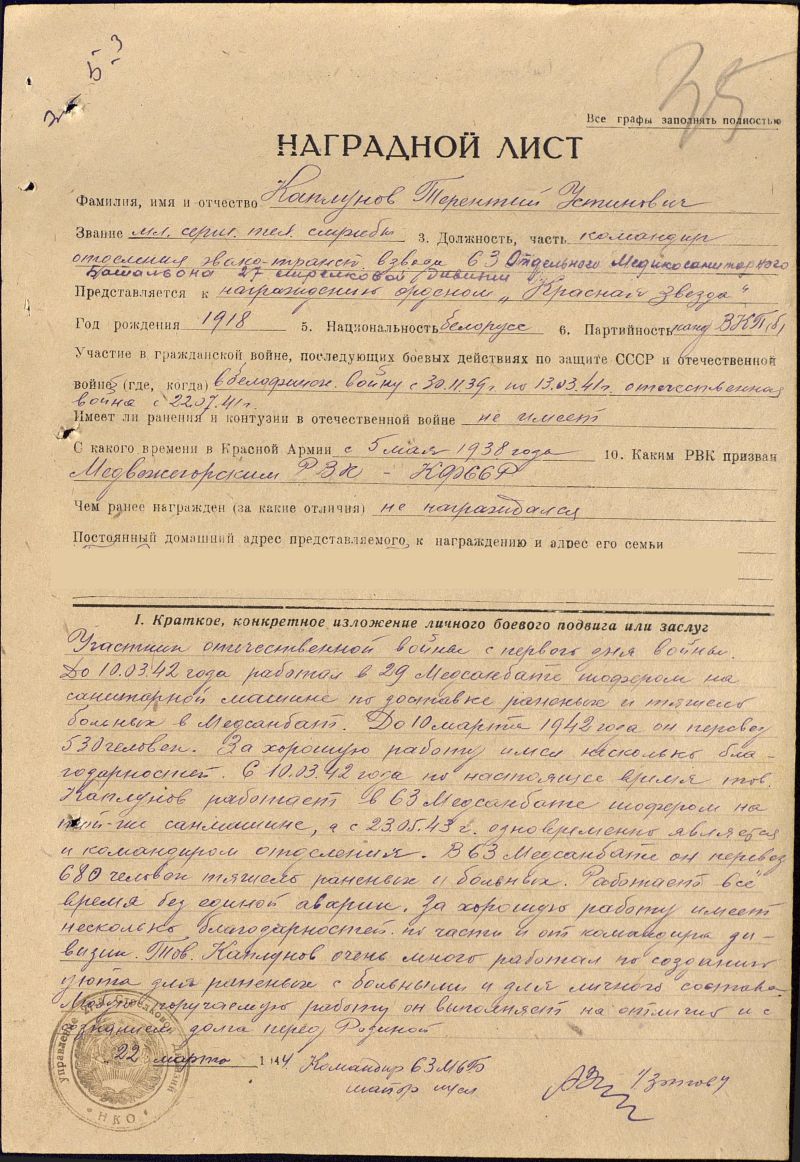 35
Все графы заполнять полностью
НАГРАДНОЙ ЛИСТ
Фамилия, имя и отчество Каплунов Терентий Устинович
Звание мл. серж. тех. службы 3. Должность, часть командир
отделения эвако-трансп. взвода 63 Отдельного Медикосанитарного
Батальона 27 стрелковой дивизии
Представляется к награждению орденом „Красная Звезда"
Год рождения 1918 5. Национальность белорусс 6. Партийность канд ВКП(б)
Участие в гражданской войне, последующих боевых действиях по защите СССР и отечественной
войне (где, когда) в белофинск. войну с 30.11.39г по 13.03.41г. отечественная
война с 22.07.41г.
Имеет ли ранения и контузии в отечественной войне не имеет
С какого времени в Красной Армии с 5 мая 1938 года 10. Каким РВК призван
Медвежегорским РВК - КФССР
Чем ранее награжден (за какие отличия) не награждался
Постоянный домашний адрес представляемого к награждению и адрес его семьи
I. Краткое, конкретное изложение личного боевого подвига или заслуг
Участник отечественной войны с первого дня войны.
До 10.03.42 года работал в 29 Медсанбате шофером на
санитарной машине по доставке раненых и тяжело
больных в Медсанбат. До 10 марта 1942 года он перевез
530 человек. За хорошую работу имел несколько бла-
годарностей. С 10.03.42 года по настоящее время тов.
Каплунов работает в 63 Медсанбате шофером на
санмашине, а с 23.05.43 г. одновременно является
и командиром отделения. В 63 Медсанбате он перевез
680 человек тяжело раненых и больных. Работает все
время без единой аварии. За хорошую работу имеет
несколько благодарностей по части и от командира ди-
визии. Тов. Каплунов очень много работал по созданию
уюта для раненых с больными и для личного состава.
поручаемую работу он выполняет на отлично и с
долга перед Родиной.
22 марта 1944 Командир 63 МСБ
майор м/сл
Управление 27 Стрелковой Дивизии
НКО